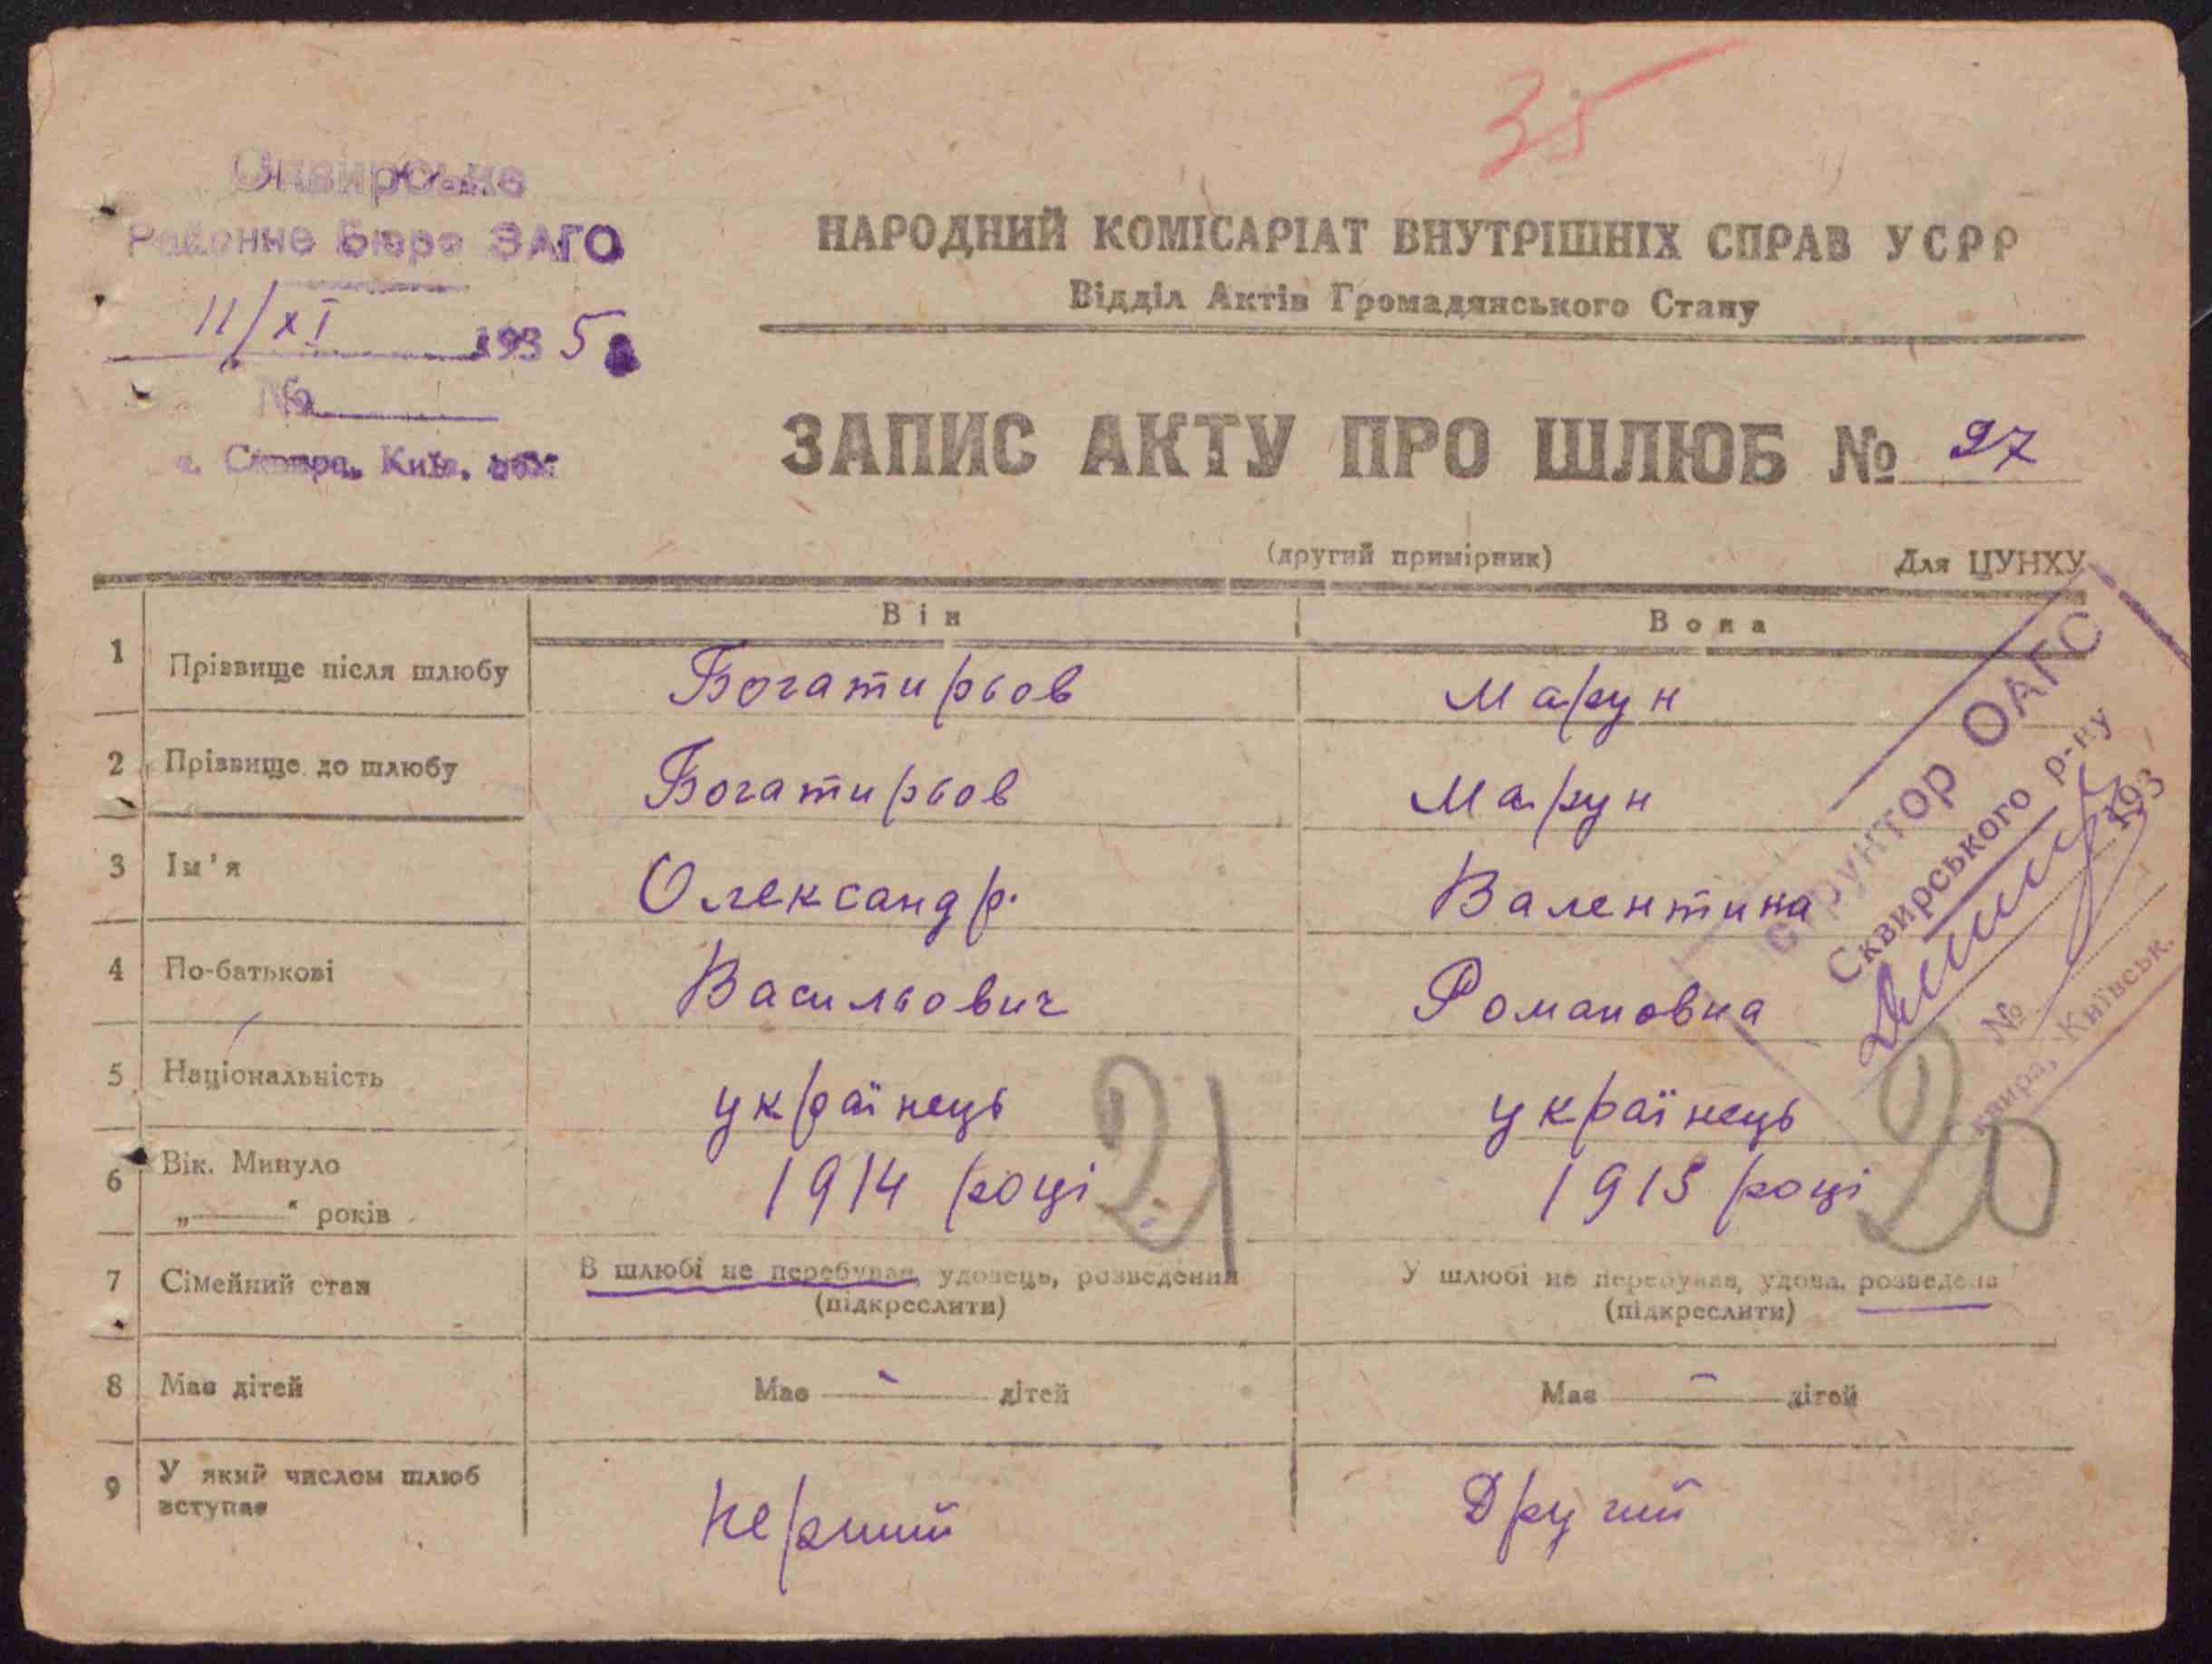 35
Сквирське
Районне Бюро ЗАГС
11/XI 1935
№
м. Сквира, Київ. обл.
НАРОДНИЙ КОМІСАРІАТ ВНУТРІШНІХ СПРАВ УСРР
Відділ Актів Громадянського Стану
ЗАПИС АКТУ ПРО ШЛЮБ № 97
(другий примірник) Для ЦУНХУ
Він Вона
1 Прізвище після шлюбу Богатирьов Марун
2 Прізвище до шлюбу Богатирьов Марун
3 Ім'я Олександр. Валентина
4 По-батькові Васильович Романовна
5 Національність українець українець
6 Вік. Минуло 1914 році 21 1915 році 20
„——“ років
7 Сімейний стан В шлюбі не перебував, удовець, розведений У шлюбі не перебував, удова, розведена
(підкреслити) (підкреслити)
8 Має дітей Має - дітей Має - дітей
9 У який числом шлюб вступає Перший Другий
структор ОАГС
Сквирського р-ну
193
№
квира, Київськ.